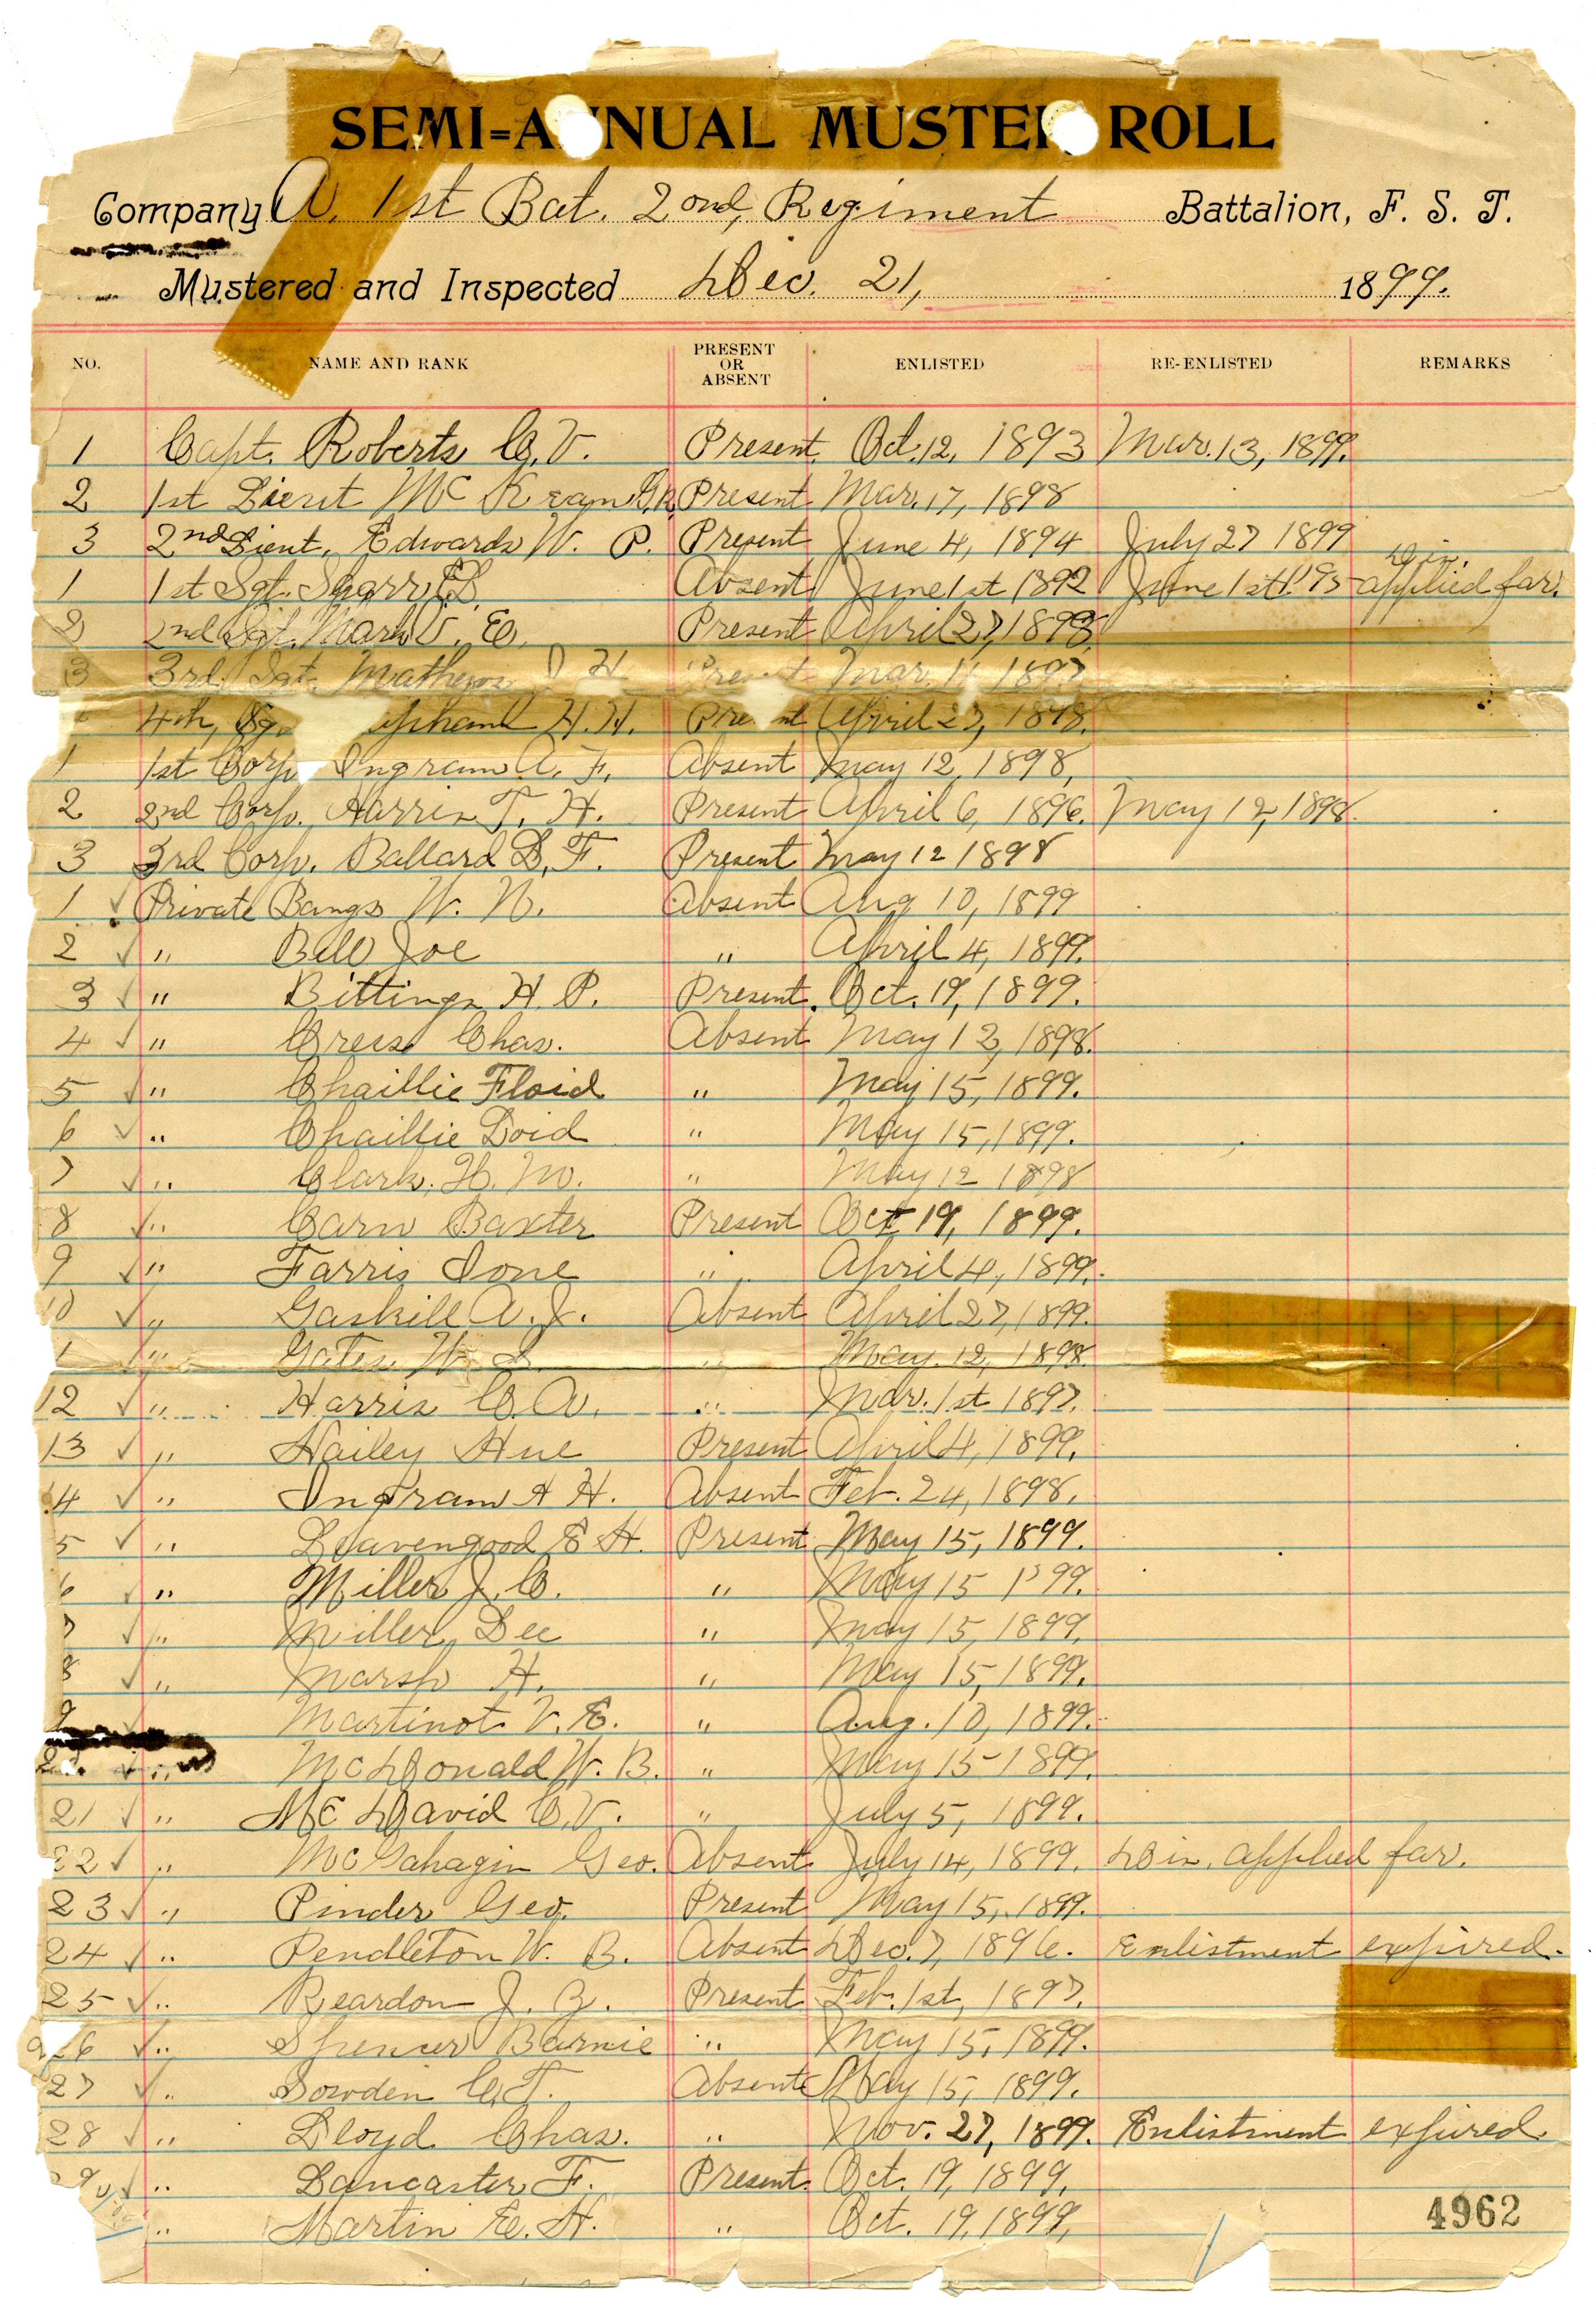 SEMI=ANNUAL MUSTER ROLL
Company A. 1st Bat. 2nd, Regiment Battalion, F. S. T.
Mustered and Inspected Dec. 21, 1899.
NO. NAME AND RANK PRESENT OR ABSENT ENLISTED RE-ENLISTED REMARKS
1 Capt. Roberts C. V. Present Oct. 12, 1893 Mar. 13, 1899.
2 1st Lieut Present Mar. 17, 1898
3 2nd Lieut. Edwards W. P. Present June 4, 1894 July 27 1899
1 1st Sgt. Absent June 1st 1892 June 1st 95 Dis. applied for.
2 2nd Sgt. Mark V. E. Present April 27, 1898
3 3rd. Sgt. Mathews Present Mar. 1897
4th, Sg. H. H. Present April 27, 1898.
1 1st Corp Ingram A. F. Absent May 12, 1898,
2 2nd Corp. Harris T. H. Present April 6, 1896. May 12, 1898.
3 3rd Corp. Ballard L. F. Present May 12 1898
1 Private Bangs W. N. Absent Aug 10, 1899
2 " Bell Joe " April 4, 1899.
3 " Bittings H. P. Present. Oct. 19, 1899.
4 " Chas. Absent May 12, 1898.
5 " Chaillie Floid " May 15, 1899.
6 " Chaillie Loid " May 15, 1899.
7 " Clark. H. M. " May 12 1898
8 " Carn Baxter Present Oct 19, 1899.
9 " Farris Ione " April 4, 1899.
10 " Gaskill A. J. Absent April 27, 1899.
1 " Gates W. L. " May. 12, 1898
12 " Harris C. A. " Mar. 1st 1897.
13 " Hailey Hue Present April 4, 1899.
14 " Ingram A H. Absent Feb. 24, 1898.
5 " Leavengood E H. Present May 15, 1899.
6 " Miller J. C. " May 15 1899.
7 " Miller Lee " May 15, 1899.
8 " Marsh H. " May 15, 1899.
9 " Martinot V. E. " Aug. 10, 1899.
2 " McDonald W. B. " May 15 1899.
21 " McDavid C. V. " July 5, 1899.
22 " McGahagin Geo. Absent July 14, 1899. Dis. applied for.
23 " Pinder Geo. Present May 15, 1899.
24 " Pendleton W. B. Absent Dec. 7, 1896. Enlistment expired.
25 " Reardon J. Z. Present Feb. 1st, 1897.
26 " Spencer Barnie " May 15, 1899.
27 " Sowden C. T. Absent May 15, 1899.
28 " Lloyd Chas. " Nov. 27, 1899. Enlistment expired.
29 " Lancaster F. Present. Oct. 19, 1899.
" Martin E. H. " Oct. 19, 1899,
4962